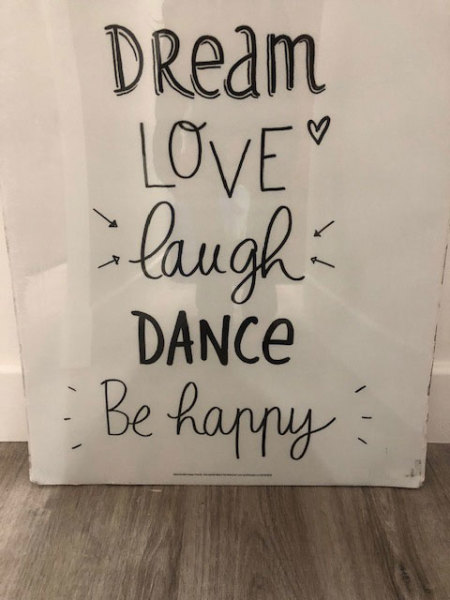 DReam
LOVE
laugh
DANCe
Be happy